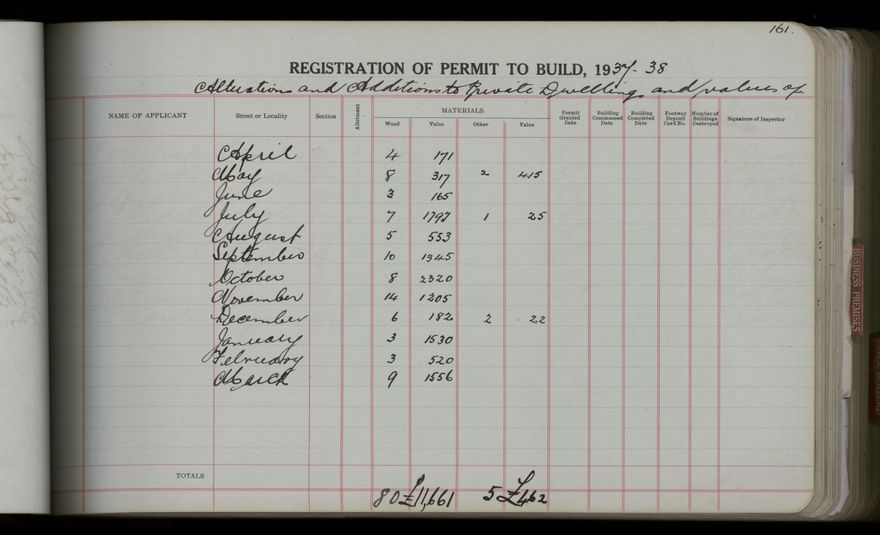 161.
REGISTRATION OF PERMIT TO BUILD, 1937-38
Alterations and Additions to Private Dwelling and values of
NAME OF APPLICANT Street or Locality Section Allotment MATERIALS Permit Granted Date Building Commenced Date Building Completed Date Footway Deposit Card No. Number of Buildings Destroyed Signature of Inspector
Wood Value Other Value
April 4 171
May 8 317 2 415
June 3 165
July 7 1797 1 25
August 5 553
September 10 1345
October 8 2320
November 14 1205
December 6 182 2 22
January 3 1530
February 3 520
March 9 1556
TOTALS
80 £11,661 5 £462
BUSINESS PREMISES